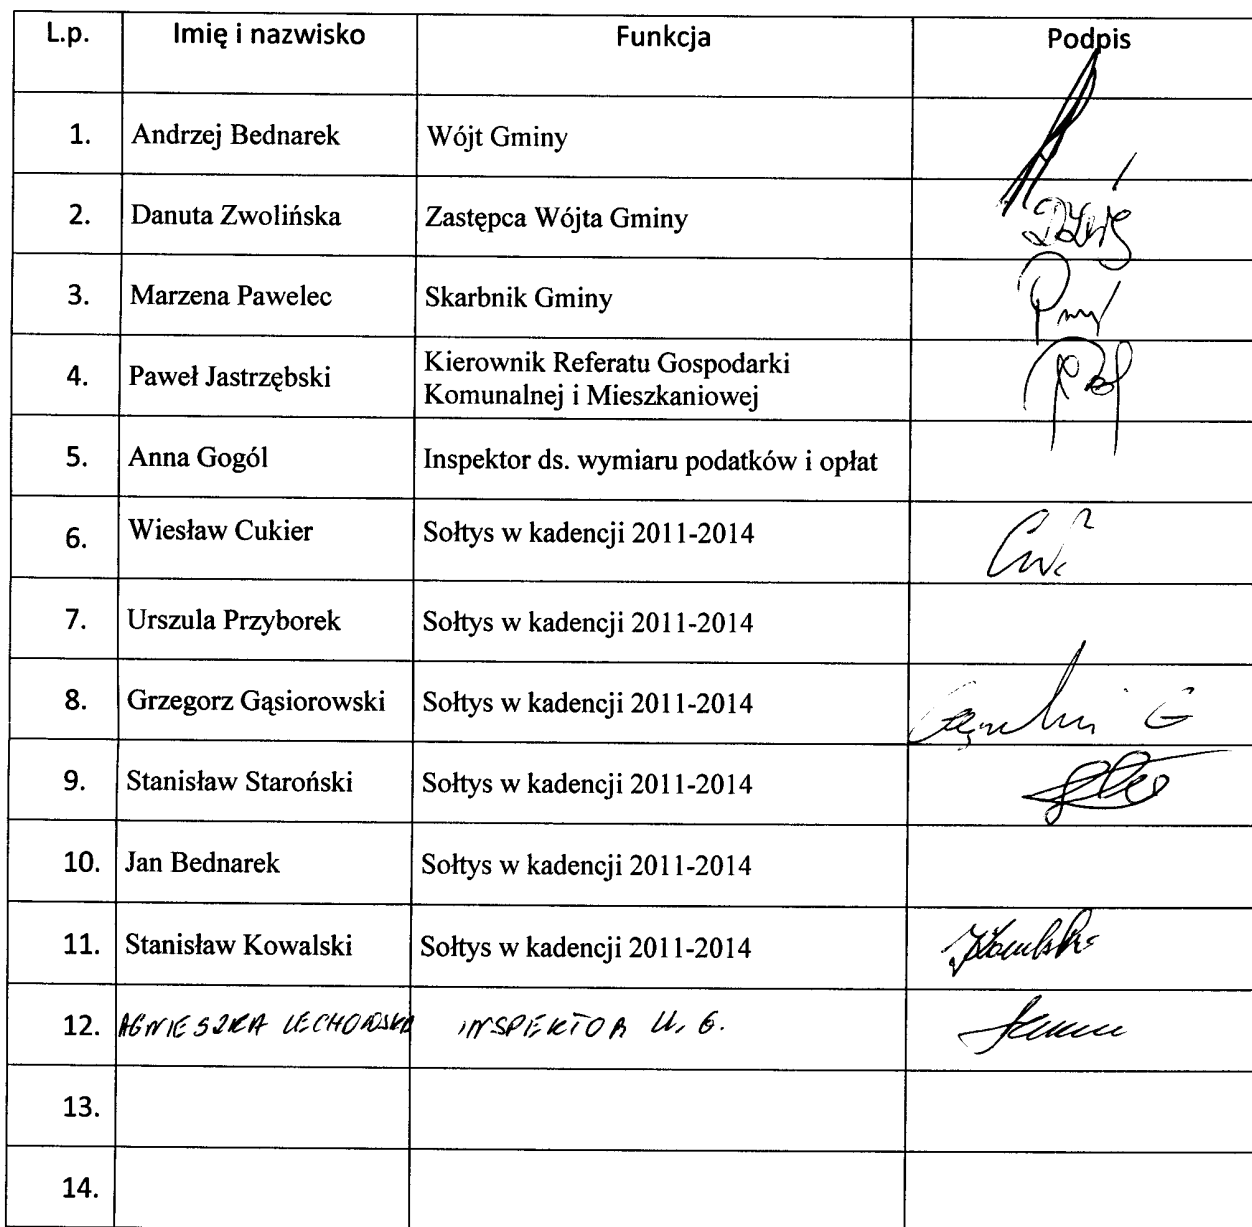 L.p. Imię i nazwisko Funkcja Podpis
1. Andrzej Bednarek Wójt Gminy
2. Danuta Zwolińska Zastępca Wójta Gminy
3. Marzena Pawelec Skarbnik Gminy
4. Paweł Jastrzębski Kierownik Referatu Gospodarki
Komunalnej i Mieszkaniowej
5. Anna Gogól Inspektor ds. wymiaru podatków i opłat
6. Wiesław Cukier Sołtys w kadencji 2011-2014
7. Urszula Przyborek Sołtys w kadencji 2011-2014
8. Grzegorz Gąsiorowski Sołtys w kadencji 2011-2014
9. Stanisław Staroński Sołtys w kadencji 2011-2014
10. Jan Bednarek Sołtys w kadencji 2011-2014
11. Stanisław Kowalski Sołtys w kadencji 2011-2014
12. AGNIESZKA INSPEKTOR U. G.
13.
14.